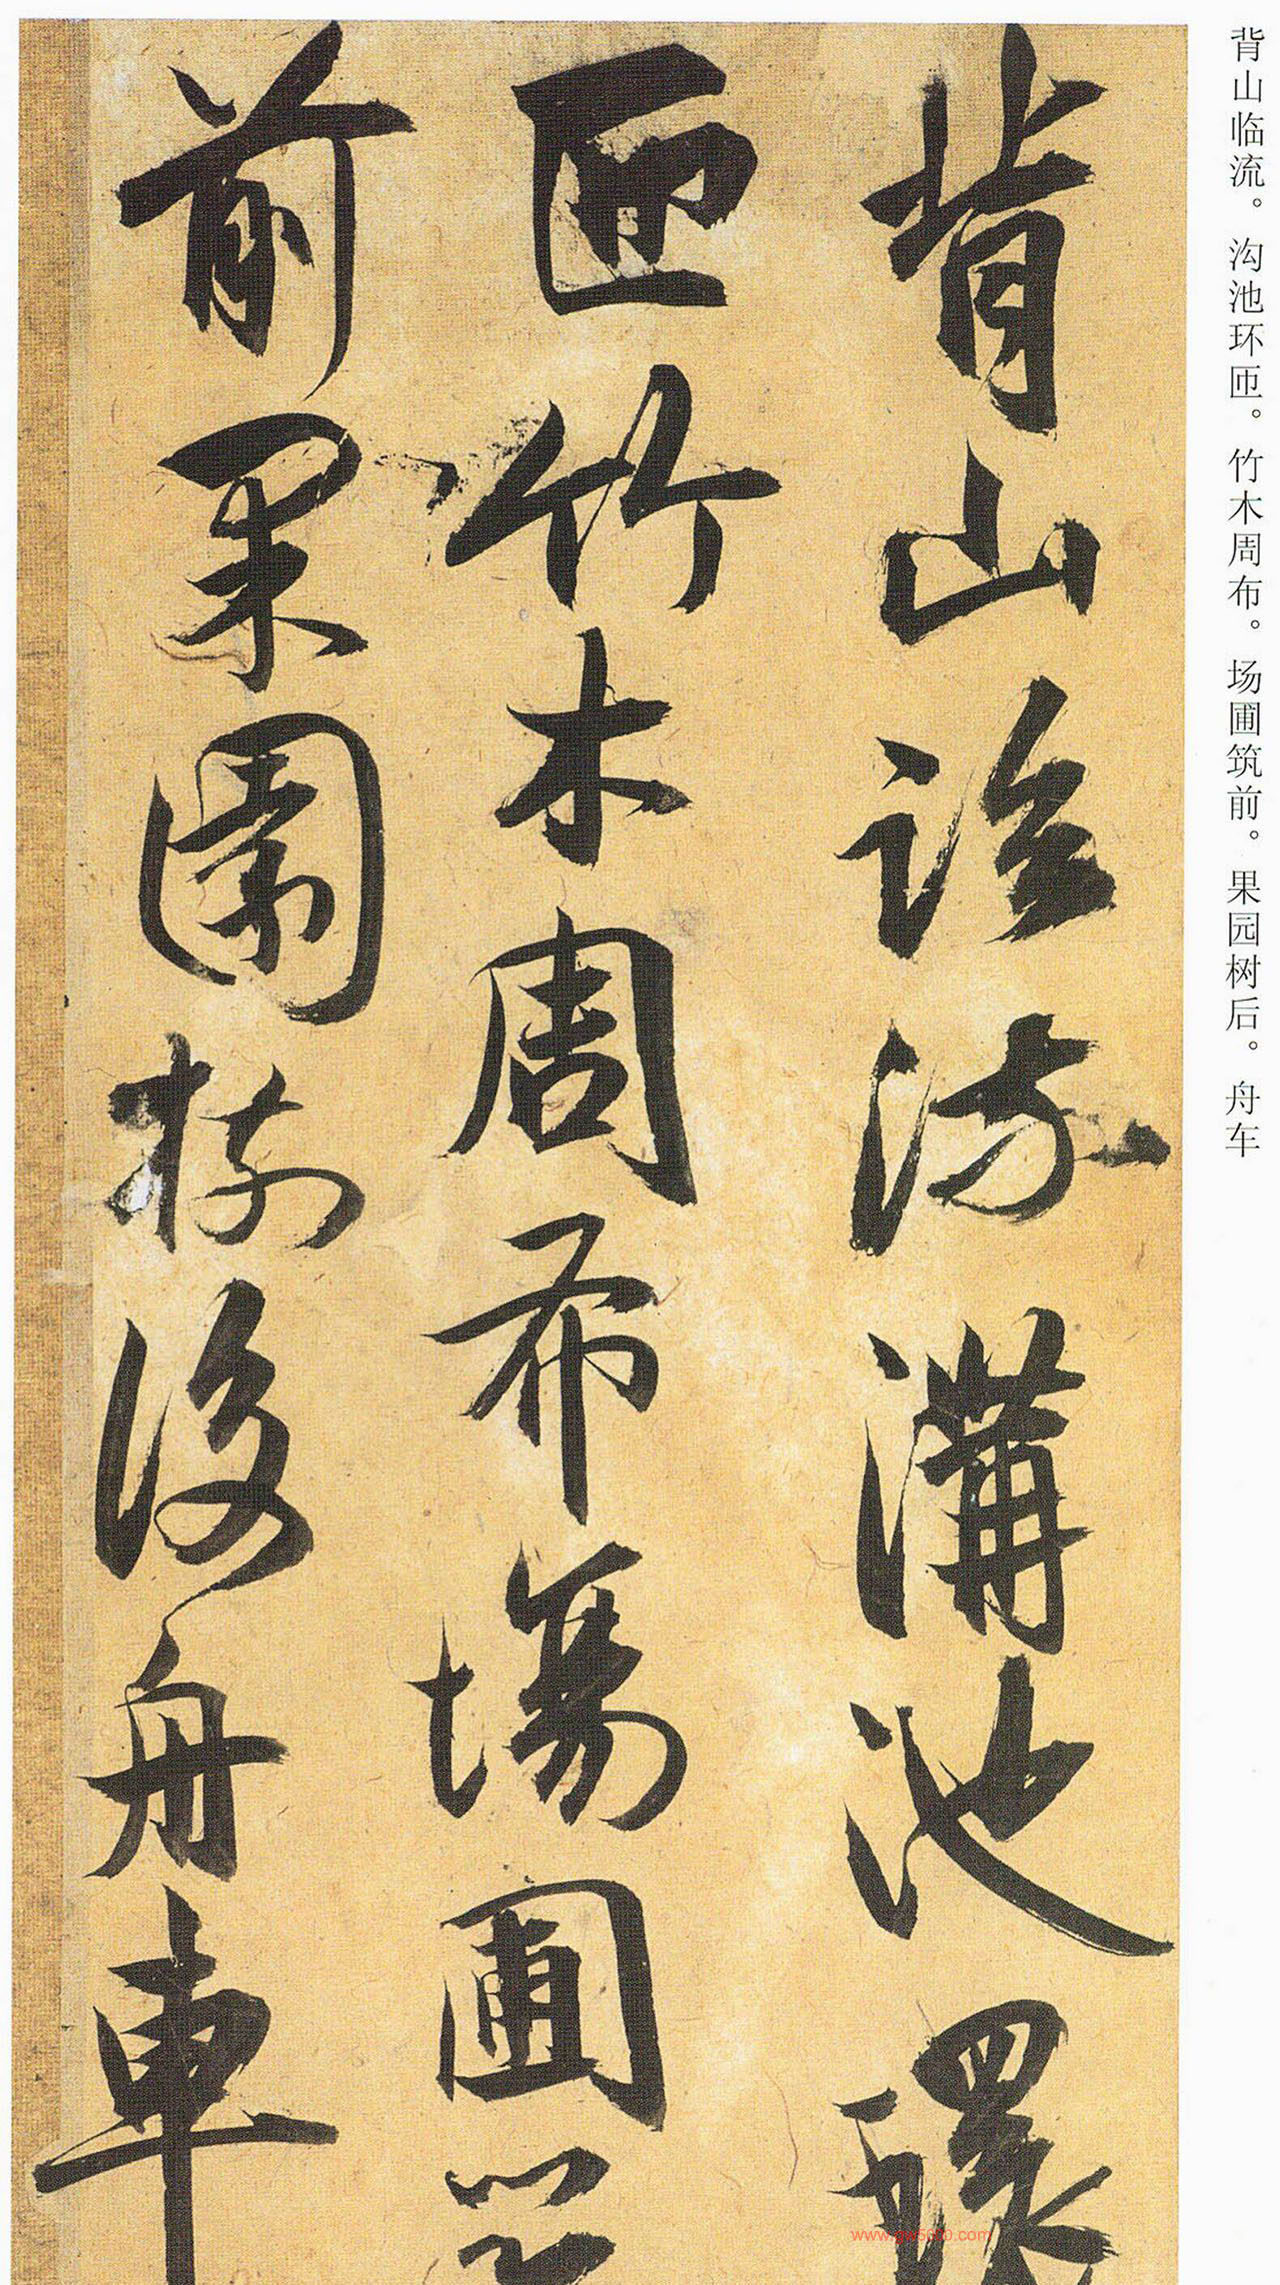 背山临流。沟池环匝。竹木周布。场圃筑前。果园树后。舟车
背山臨流溝池環
匝竹木周布場圃
前果園樹後舟車